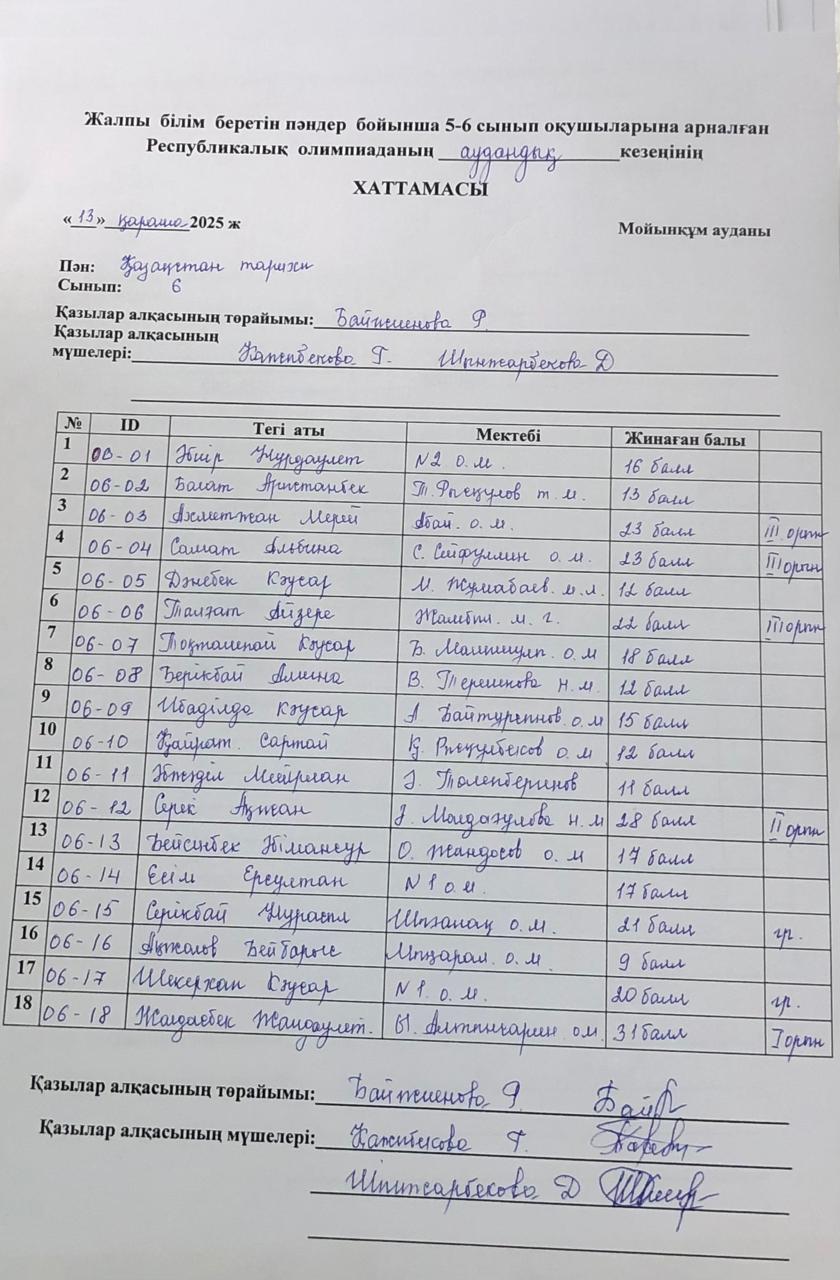 Жалпы білім беретін пәндер бойынша 5-6 сынып оқушыларына арналған
Республикалық олимпиаданың аудандық кезеңінің
ХАТТАМАСЫ
«13» қараша 2025 ж Мойынқұм ауданы
Пән: Қазақстан тарихы
Сынып: 6
Қазылар алқасының төрайымы: Байжиенова Р.
Қазылар алқасының
мүшелері: Кажибекова Г. Шынжарбекова Д
№ ID Тегі аты Мектебі Жинаған балы
1 06-01 Әбір Нұрдаулет N2 о.м. 16 балл
2 06-02 Болат Арыстанбек Т. Рысқұлов т.м. 13 балл
3 06-03 Ахметжан Мерей Абай. о.м. 23 балл III орын
4 06-04 Самат Альбина С. Сейфуллин о.м. 23 балл III орын
5 06-05 Дәнебек Кәусар М. Жұмабаев. м.л. 12 балл
6 06-06 Талғат Айзере Жамбыл. м. г. 22 балл III орын
7 06-07 Тоқташпай Кәусар Б. Момышұлы. о.м 18 балл
8 06-08 Берікбай Амина В. Терешкова н.м. 12 балл
9 06-09 Ибаділда Кәусар А Байтұрсынов. о.м 15 балл
10 06-10 Қайрат. Сартай Қ. Рысқұлбеков о.м 12 балл
11 06-11 Әбжәділ Мейрлан 11 балл
12 06-12 Серек Ақжан Ә. Молдағұлова н.м 28 балл II орын
13 06-13 Бейсенбек Әбімансұр О. Жандосов о.м 17 балл
14 06-14 Есім Ерсұлтан N1 о.м. 17 балл
15 06-15 Серікбай Нұрасыл Шығанақ о.м. 21 балл гр.
16 06-16 Ақжолов Бейбарыс Мыңарал. о.м. 9 балл
17 06-17 Шекерхан Кәусар N1. о.м. 20 балл гр.
18 06-18 Жолдасбек Жандәулет. Ы. Алтынсарин о.м. 31 балл I орын
Қазылар алқасының төрайымы: Байжиенова Р.
Қазылар алқасының мүшелері: Кажибекова Г.
Шынжарбекова Д